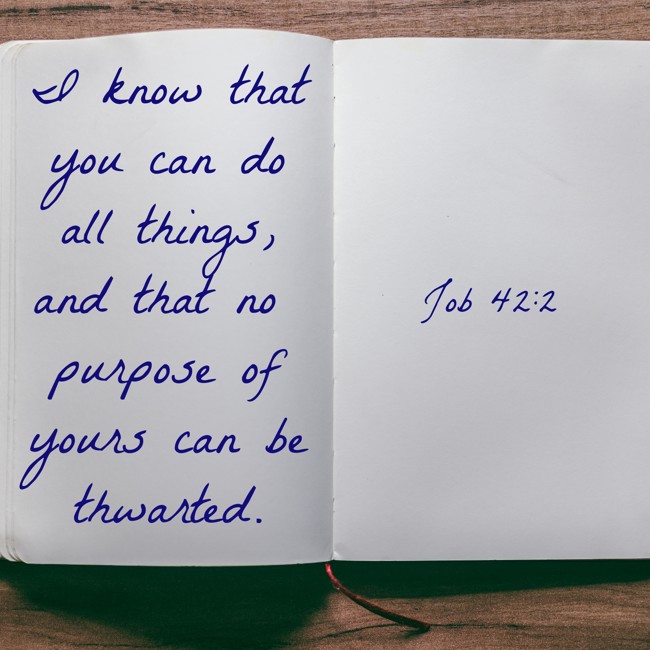 I know that
you can do
all things,
and that no
purpose of
yours can be
thwarted.
Job 42:2